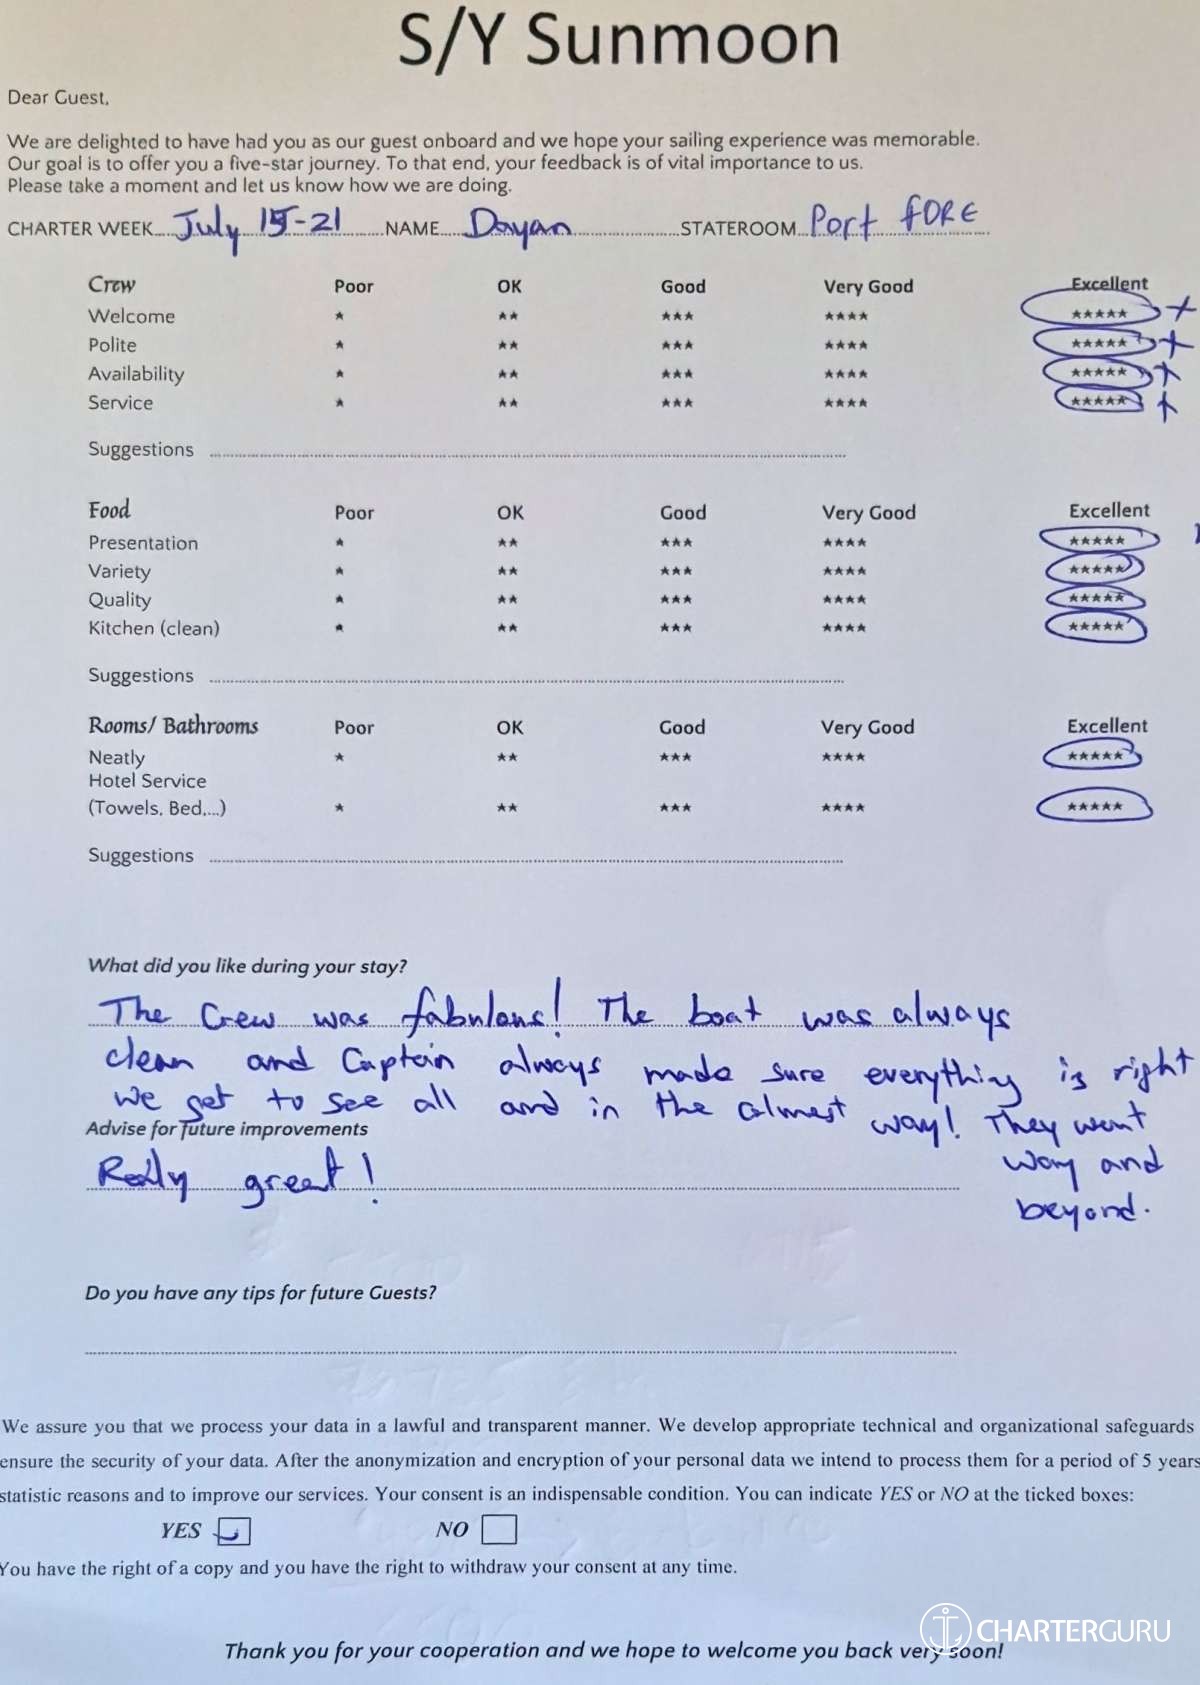 S/Y Sunmoon
Dear Guest,
We are delighted to have had you as our guest onboard and we hope your sailing experience was memorable.
Our goal is to offer you a five-star journey. To that end, your feedback is of vital importance to us.
Please take a moment and let us know how we are doing.
CHARTER WEEK July 15-21 NAME Dayan STATEROOM Port fORE
Crew Poor OK Good Very Good Excellent
Welcome ★ ★★ ★★★ ★★★★ ★★★★★ +
Polite ★ ★★ ★★★ ★★★★ ★★★★★ +
Availability ★ ★★ ★★★ ★★★★ ★★★★★ +
Service ★ ★★ ★★★ ★★★★ ★★★★★ +
Suggestions
Food Poor OK Good Very Good Excellent
Presentation ★ ★★ ★★★ ★★★★ ★★★★★
Variety ★ ★★ ★★★ ★★★★ ★★★★★
Quality ★ ★★ ★★★ ★★★★ ★★★★★
Kitchen (clean) ★ ★★ ★★★ ★★★★ ★★★★★
Suggestions
Rooms/ Bathrooms Poor OK Good Very Good Excellent
Neatly ★ ★★ ★★★ ★★★★ ★★★★★
Hotel Service
(Towels, Bed,...) ★ ★★ ★★★ ★★★★ ★★★★★
Suggestions
What did you like during your stay?
The Crew was fabulous! The boat was always
clean and Captain always made sure everything is right
we get to see all and in the calmest way! They went
way and
beyond.
Advise for future improvements
Really great!
Do you have any tips for future Guests?
We assure you that we process your data in a lawful and transparent manner. We develop appropriate technical and organizational safeguards
ensure the security of your data. After the anonymization and encryption of your personal data we intend to process them for a period of 5 years
statistic reasons and to improve our services. Your consent is an indispensable condition. You can indicate YES or NO at the ticked boxes:
YES NO
You have the right of a copy and you have the right to withdraw your consent at any time.
CHARTERGURU
Thank you for your cooperation and we hope to welcome you back very soon!